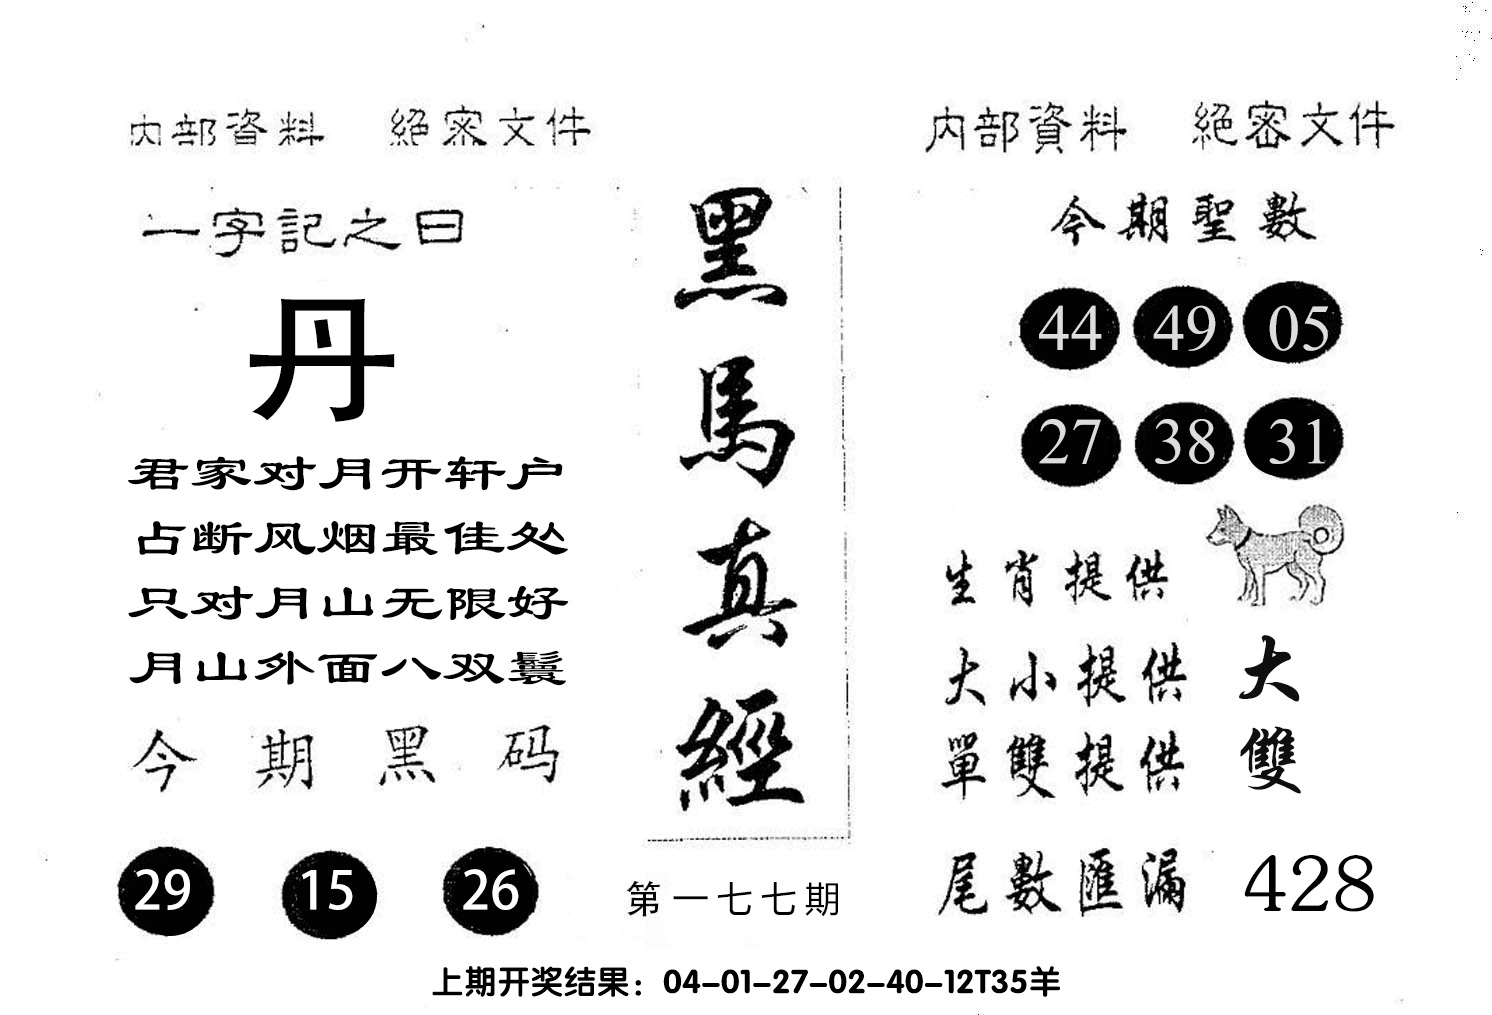 内部資料 絕密文件
一字記之曰
丹
君家对月开轩户
占断风烟最佳处
只对月山无限好
月山外面八双鬟
今期黑码
29 15 26
黑馬真經
第一七七期
内部資料 絕密文件
今期聖數
44 49 05
27 38 31
生肖提供
大小提供 大
單雙提供 雙
尾數匯漏 428
上期开奖结果：04-01-27-02-40-12T35羊